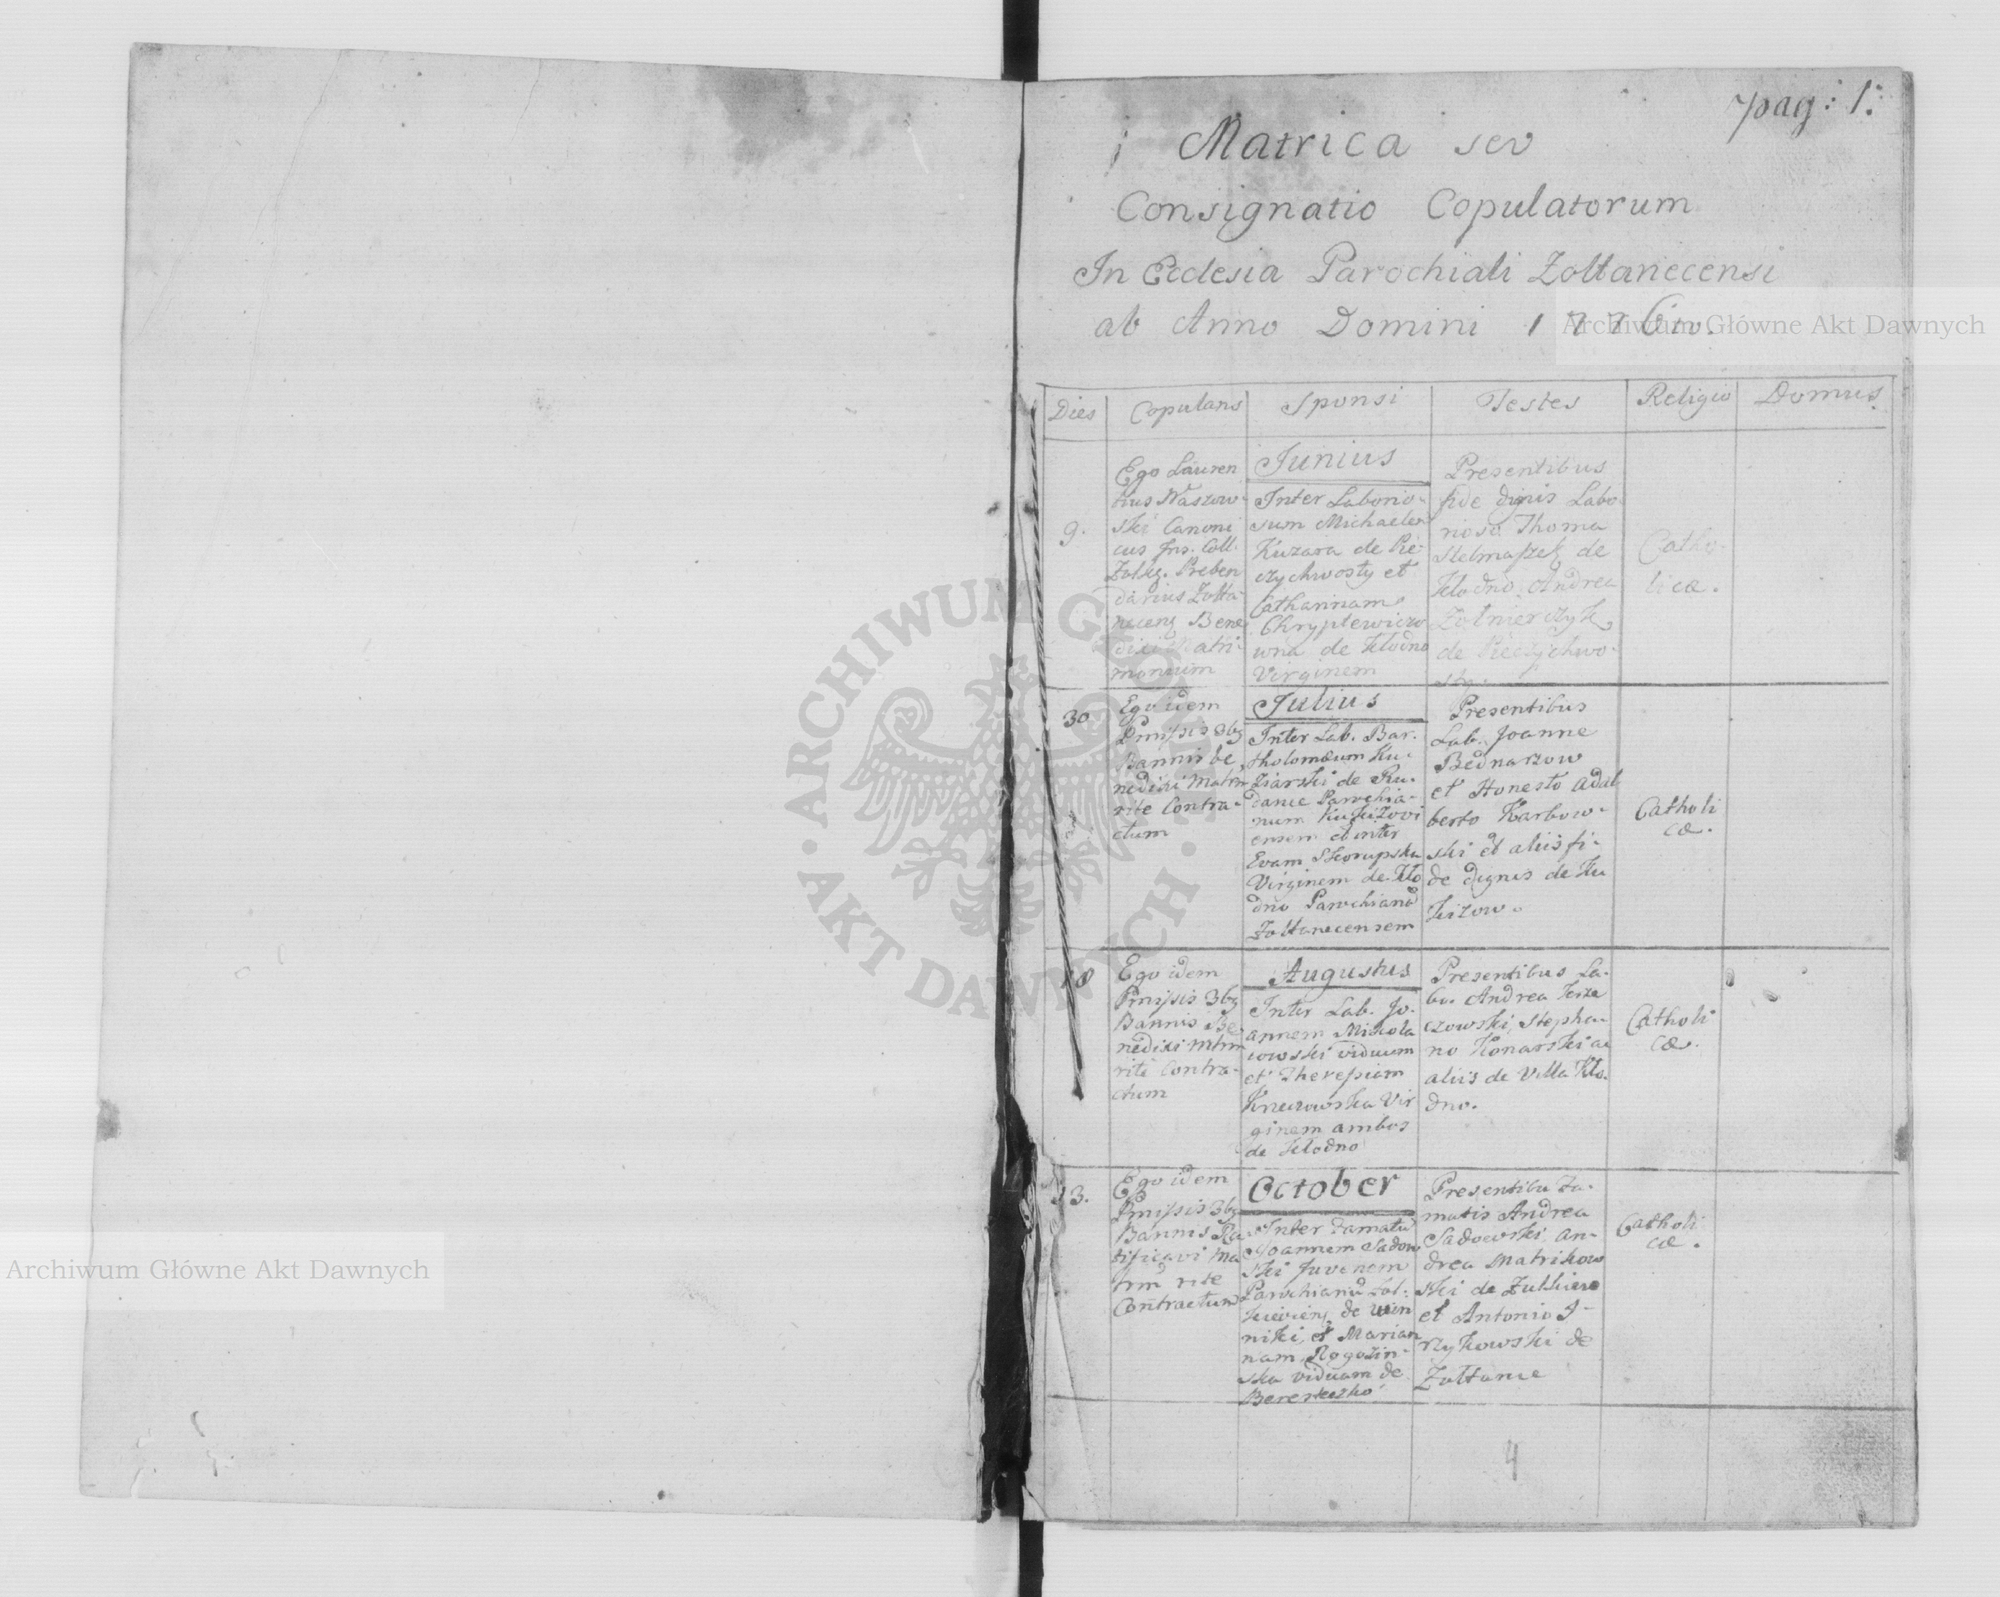 pag: 1.
Matrica seu
Consignatio Copulatorum
In Ecclesia Parochiali Zoltanecensi
ab Anno Domini 1776
Archiwum Główne Akt Dawnych
Dies Copulans Sponsi Testes Religio Domus
9.
Ego Lauren
tius Waszow-
ski Canoni
cus Ins. Coll.
Zolkg. Preben
darius Zolta-
necens Bene
dixi Matri-
monium
Junius
Inter Laborio-
sum Michaelem
Kuzara de Pie-
czychwosty et
Catharinam
Chryptewiczo
wna de Kłodno
Virginem
Presentibus
fide dignis Labo-
rioso Thoma
Stelmaszek de
Kłodno, Andrea
Zołnierczyk
de Pieczychwo-
sty.
Catho-
licae.
30
Ego idem
Pmissis 3bg
Bannis be
nedixi Matrm
rite Contra-
ctum
Julius
Inter Lab. Bar-
tholomeum Ku-
ziarski de Ru-
dance Parochia-
num Kukizovi
ensem et inter
Evam Skorupska
Virginem de Kło
dno Parochiana
Zoltanecensem
Presentibus
Lab. Joanne
Bednarzow
et Honesto Adal
berto Karbow-
ski et aliis fi-
de dignis de Ku
kizow.
Catholi
cae.
18
Ego idem
Pmissis 3bg
Bannis Be
nedixi Mtrm
rite Contra-
ctum
Augustus
Inter Lab. Jo-
annem Mikola
iowski viduum
et Theressiam
Kniezowska Vir
ginem ambos
de Kłodno
Presentibus La-
bo. Andrea Kiza
czowski, Stepha-
no Konarski ac
aliis de Villa Kło-
dno.
Catholi
cae.
13.
Ego idem
Pmissis 3bg
Bannis Ra-
tificavi Ma
trm rite
Contractum
October
Inter Famatu
Joannem Sadow
ski Juvenem
Parochianu Zol-
kieviens de Win
niki, et Marian
nam Rogozin-
ska viduam de
Beresteczko
Presentibu Fa-
matis Andrea
Sadowski, An-
drea Matrikow
ski de Zulkiew
et Antonio J-
rzykowski de
Zoltance
Catholi
cae.
4
Archiwum Główne Akt Dawnych
ARCHIWUM GŁÓWNE · AKT DAWNYCH ·